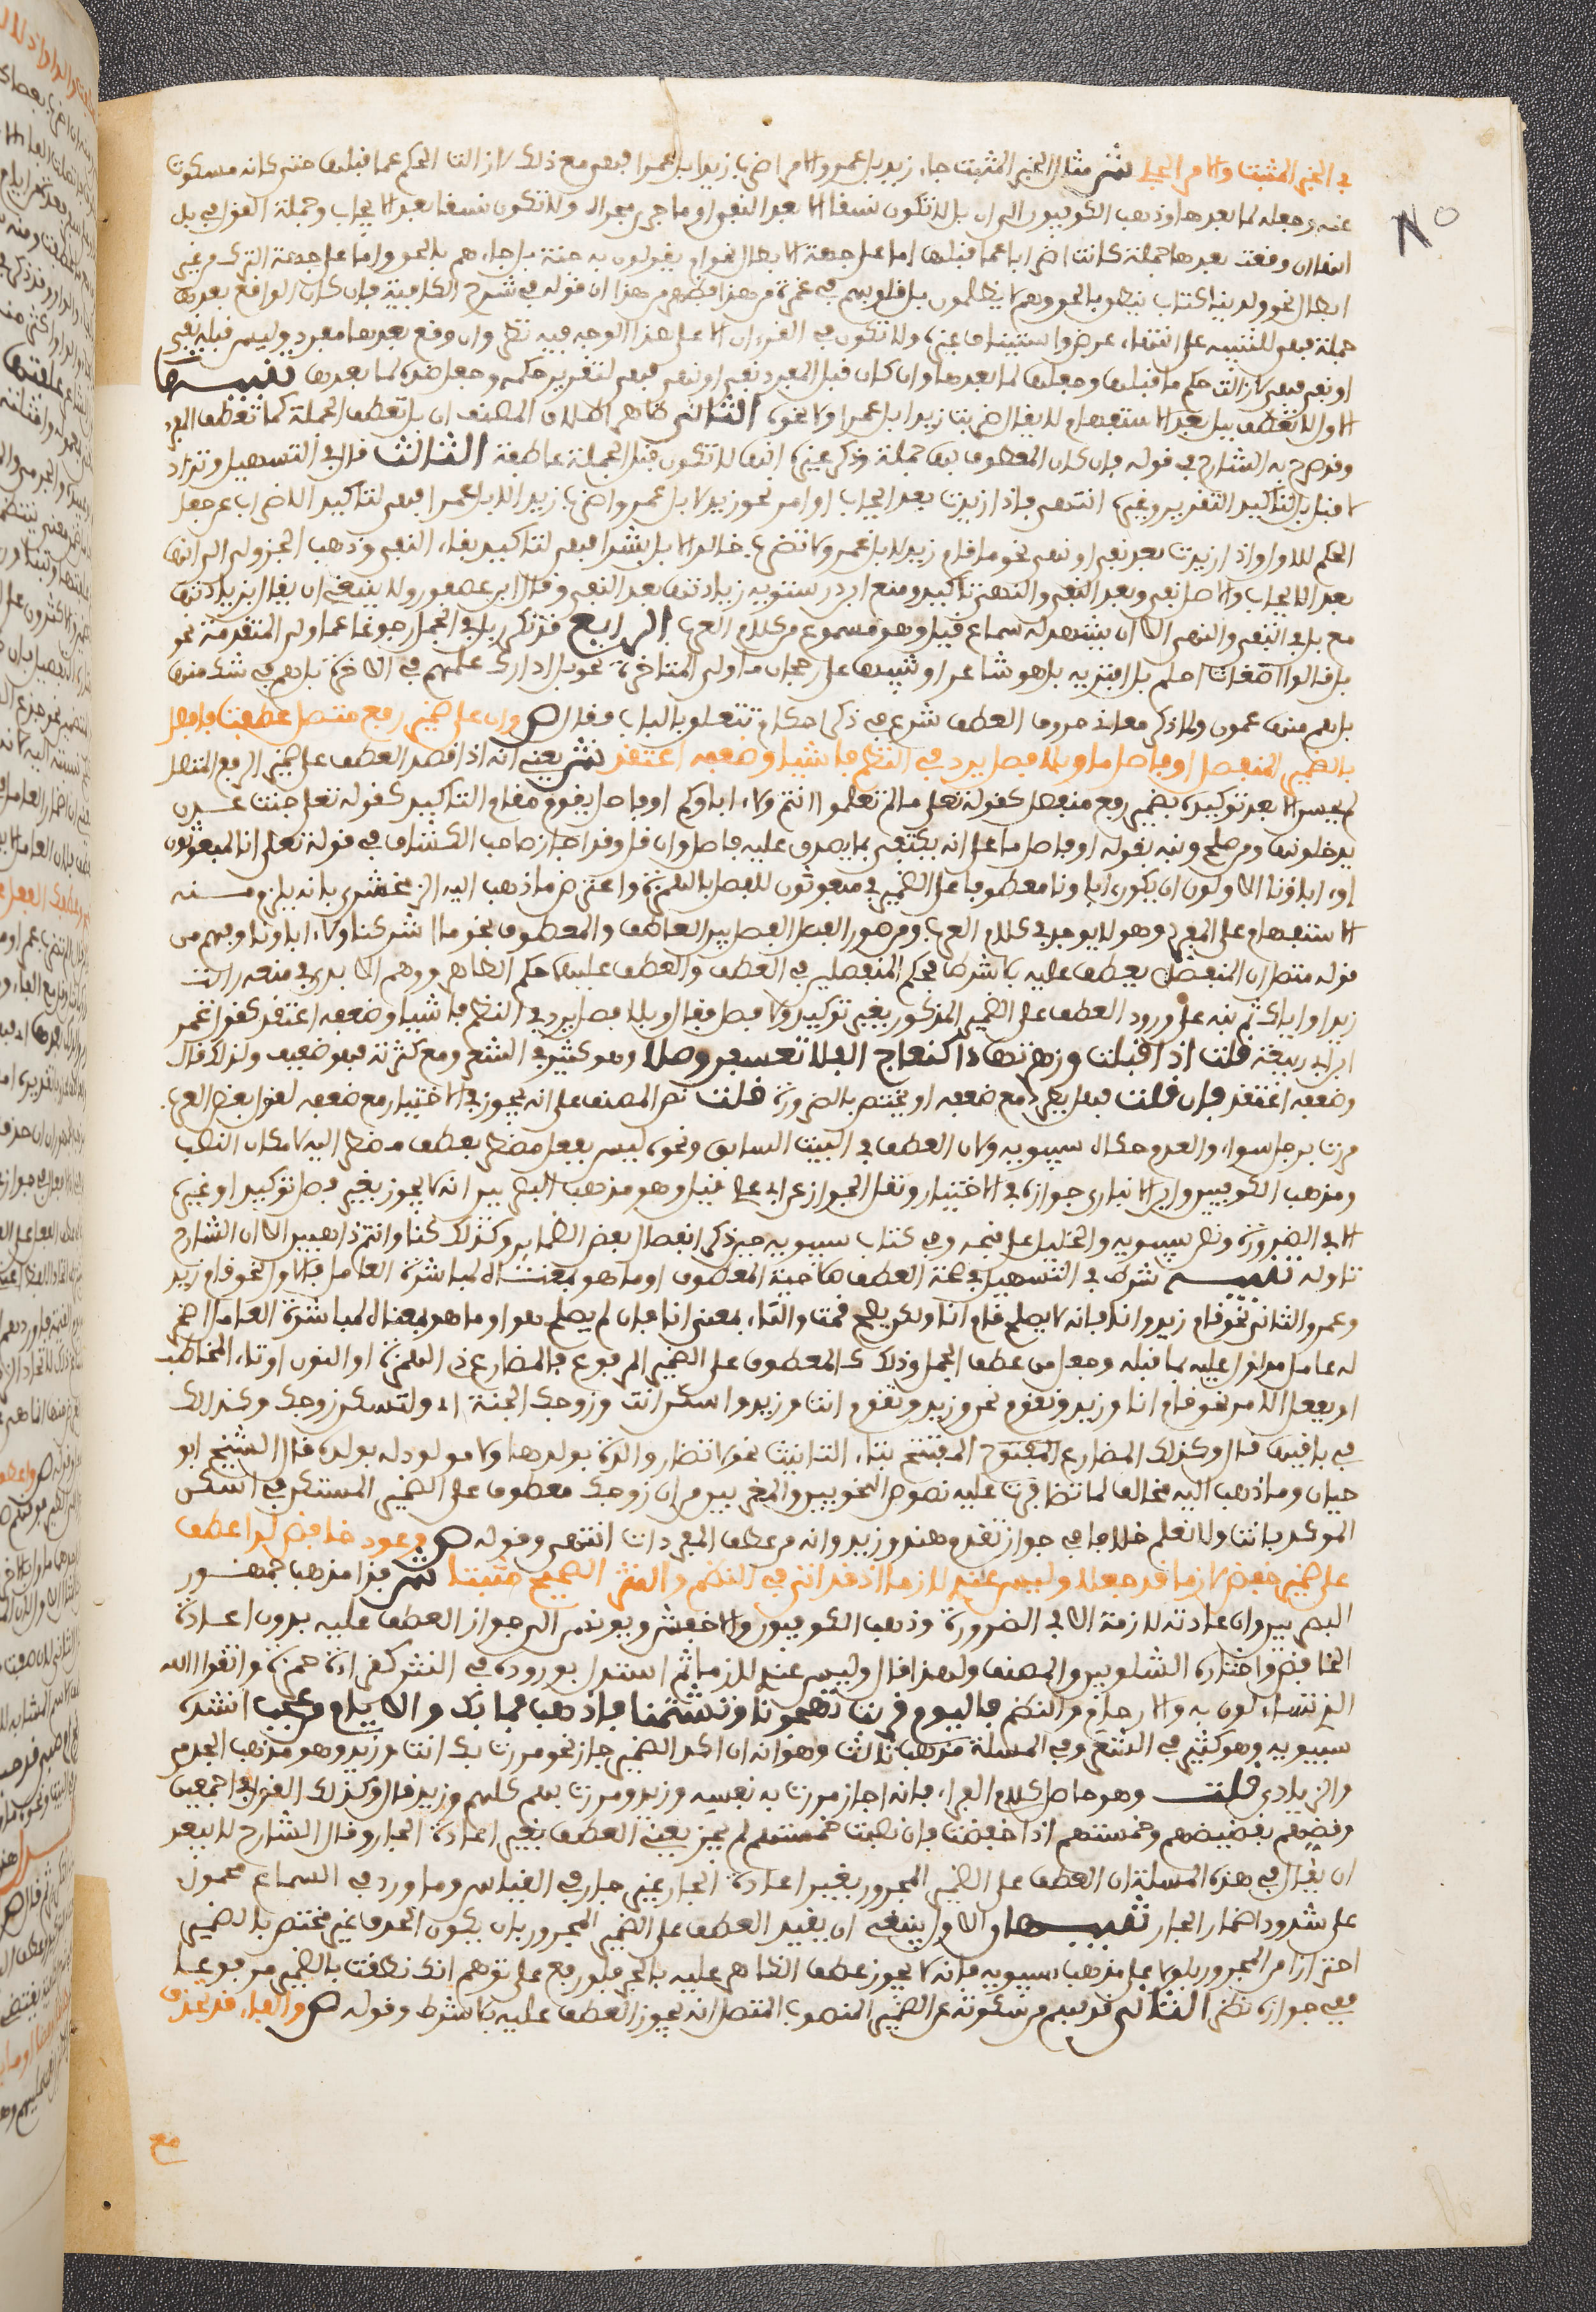 في الخبر المثبت والامر الجلي ش مثال الخبر المثبت جاء زيد بل عمرو والامر اضرب زيدا بل عمرا فهي مع ذلك لازالت الحكم عما قبلها حتى كانه مسكوت
عنه وجعله لما بعدها وذهب الكوفيون الى ان بل لا تكون نسقا الا بعد النفي او ما جرى مجراه ولا تكون نسقا بعد الايجاب وجملة القول في بل
انها ان وقعت بعدها جملة كانت اضرابا عما قبلها اما على جهة الابطال نحو ام يقولون به جنة بل جاءهم بالحق واما على جهة الترك من غير
ابطال نحو ولدينا كتاب ينطق بالحق وهم لا يظلمون بل قلوبهم في غمرة من هذا فظهر من هذا ان قوله في شرح الكافية فان كان الواقع بعدها
جملة فهي للتنبيه على انتهاء غرض واستيناف غيره ولا تكون في القرءان الا على هذا الوجه فيه نظر وان وقع بعدها مفرد وليس قبله نفي
او نهي فهي لازالت حكم ما قبلها وجعلها لما بعدها وان كان قبل المفرد نفي او نهي فهي لتقرير حكمه وجعل ضده لما بعدها تنبيهات
الاول لا تعطف ببل بعد الاستفهام لا يقال اضربت زيدا بل عمرا ولا نحوه الثاني ظاهر اطلاق المصنف ان بل تعطف الجملة كما تعطف المفرد
وقد صرح به الشارح في قوله فان كان المعطوف بها جملة وذكر غيره انها لا تكون قبل الجملة عاطفة الثالث قال في التسهيل وتزاد
لا قبل بل لتاكيد التقرير وغيره انتهى فاذا زيدت بعد ايجاب او امر نحو زيد لا بل عمرو واضرب زيدا لا بل عمرا فهي لتاكيد الاضراب عن جعل
الحكم للاول واذا زيدت بعد نفي او نهي نحو ما قام زيد لا بل عمرو ولا تضرب خالدا لا بل بشرا فهي لتاكيد بقاء النفي وذهب الجزولي الى انها
بعد الايجاب والامر نفي وبعد النفي والنهي تاكيد ومنع ابن درستويه زيادتها بعد النفي وقال ابن عصفور ولا ينبغي ان يقال بزيادتها
مع بل في النفي والنهي الا ان يشهد له سماع قيل وهو مسموع من كلام العرب الرابع قد تكرر بل في الجمل رجوعا عما ولي المتقدمة نحو
بل قالوا اضغاث احلم بل افتريه بل هو شاعر او تنبيها على رجحان ما ولي المتاخرة نحو بل ادارك علمهم في الاخرة بل هم في شك منها
بل هم منها عمون ولما ذكر معاني حروف العطف شرع في ذكر احكام تتعلق بالباب فقال ص وان على ضمير رفع متصل عطفت فافصل
بالضمير المنفصل او فاصل ما وبلا فصل يرد في النظم فاشيا وضعفه اعتقد ش يعني انه اذا قصد العطف على ضمير الرفع المتصل
لم يحسن الا بعد توكيده بضمير رفع منفصل كقوله تعلى ما لم تعلموا انتم ولا ءاباؤكم او فاصل يقوم مقام التوكيد كقوله تعلى جنت عدن
يدخلونها ومن صلح ونبه بقوله او فاصل ما على انه يكتفي بما يصدق عليه فاصل وان قل وقد اجاز صاحب الكشاف في قوله تعلى انا لمبعوثون
او ءاباؤنا الاولون ان يكون ءاباؤنا معطوفا على الضمير في مبعوثون للفصل بالهمزة واعترض ما ذهب اليه الزمخشري بانه يلزم منه
الاستفهام على المفرد وهو لا يوجد في كلام العرب ومن صور الفصل الفصل بين العاطف والمعطوف نحو ما اشركنا ولا ءاباؤنا وفهم من
قوله متصل ان المنفصل يعطف عليه بلا شرط فحكم المنفصلين في العطف والعطف عليهما حكم الظاهر ووهم الابدي في منعه رايت
زيدا واياك ثم نبه على ورود العطف على الضمير المذكور بغير توكيد ولا فصل فقال وبلا فصل يرد في النظم فاشيا وضعفه اعتقد كقول عمر
ابن ابي ربيعة قلت اذ اقبلت وزهر تهادى كنعاج الفلا تعسفن رملا وهو كثير في الشعر ومع كثرته فهو ضعيف ولذلك قال
وضعفه اعتقد فان قلت فهل يطرد مع ضعفه او يختص بالضرورة قلت نص المصنف على انه يجوز في الاختيار مع ضعفه لقول بعض العرب
مررت برجل سواء والعدم حكاه سيبويه ولان العطف في البيت السابق ونحوه ليس بفعل مضطر بعطف مضطر اليه لامكان النصب
ومذهب الكوفيين وابن الانباري جوازه في الاختيار ونقل الجواز عن ابي علي قيل وهو مذهب البصريين انه لا يجوز بغير فصل توكيد او غيره
الا في الضرورة ونص سيبويه والخليل على قبحه وفي كتاب سيبويه حين ذكر انفصال بعض الضمائر وكذلك كنا وانتم ذاهبين الا ان الشارح
تاوله تنبيه شرط في التسهيل في صحة العطف صلاحية المعطوف او ما هو بمعناه لمباشرة العامل فالاول نحو قام زيد
وعمرو والثاني نحو قام زيد وانا فانه لا يصلح قام انا ولكن يصلح قمت والتاء بمعنى انا فان لم يصلح هو او ما هو بمعناه لمباشرة العامل اضمر
له عامل مدلول عليه بما قبله وجعل من عطف الجمل وذلك كالمعطوف على الضمير المرفوع بالمضارع ذي الهمزة او النون او تاء المخاطب
او بفعل الامر نحو اقوم انا وزيد ونقوم نحن وزيد وتقوم انت وزيد واسكن انت وزوجك الجنة اي ولتسكن زوجك وكذلك
في باقيها قال وكذلك المضارع المفتوح المفتتح بتاء التانيث نحو لا تضار والدة بولدها ولا مولود له بولده قال الشيخ ابو
حيان وما ذهب اليه مخالف لما تظافرت عليه نصوص النحويين والمعربين من ان زوجك معطوف على الضمير المستكن في اسكن
الموكد بانت ولا نعلم خلافا في جواز تقوم هند وزيد وانه من عطف المفردات انتهى وقوله ص وعود خافض لدا عطف
على ضمير خفض لازما قد جعلا وليس عندي لازما اذ قد اتى في النظم والنثر الصحيح مثبتا ش هذا مذهب جمهور
البصريين وان اعادته لازمة الا في الضرورة وذهب الكوفيون والاخفش ويونس الى جواز العطف عليه بدون اعادة
الخافض واختاره الشلوبين والمصنف ولهذا قال وليس عندي لازما ثم استدل بوروده في النثر كقراءة حمزة واتقوا الله
الذي تساءلون به والارحام والنظم فاليوم قربت تهجونا وتشتمنا فاذهب فما بك والايام من عجب انشده
سيبويه وهو كثير في الشعر وفي المسئلة مذهب ثالث وهو انه ان اكد الضمير جاز نحو مررت بك انت وزيد وهو مذهب الجرمي
والزيادي قلت وهو حاصل كلام الفراء فانه اجاز مررت به نفسه وزيد ومررت بهم كلهم وزيد قال وكذلك القول في اجمعين
وقضهم بقضيضهم وخمستهم اذا خفضت فان نصبت خمستهم لم يجز يعني العطف بغير اعادة الجار وقال الشارح لا يبعد
ان يقال في هذه المسئلة ان العطف على الضمير المجرور بغير اعادة الجار غير جائز في القياس وما ورد في السماع محمول
على شذوذ اضمار الجار تنبيهان الاول ينبغي ان يقيد العطف على الضمير المجرور بان يكون الحرف غير مختص بالضمير
احترازا من المجرور بلولا على مذهب سيبويه فانه لا يجوز عطف الظاهر عليه بالجر فلو رفع على توهم انك نطقت بالضمير مرفوعا
ففي جوازه نظر الثاني قد فهم من سكوته عن الضمير المنصوب المتصل انه يجوز العطف عليه بلا شرط وقوله ص والفاء قد تحذف
مع